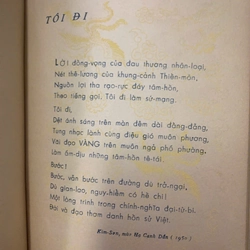 TÔI ĐI
LỜI đồng-vọng của đau thương nhân-loại,
Nét thê-lương của khung-cảnh Thiên-môn,
Nguồn lợi tha rạo-rực đáy tâm-hồn,
Theo tiếng gọi, Tôi đi làm sứ-mạng.
Tôi đi,
Dệt ánh sáng trên màn đêm dài đằng-đẵng,
Tung nhạc lành cùng điệu gió muôn phương,
Vãi đạo VÀNG trên muôn ngả phố phường,
Làm êm-dịu những tâm-hồn tê-tái.
Bước!
Bước, vẫn bước trên đường dù trở-ngại,
Dù gian-lao, nguy-hiểm có hề chi!
Một lòng trinh trong chính-nghĩa đại-từ-bi.
Đạo và đạo tham danh hồn sử Việt.
Kim-Sơn, mùa Hạ Canh Dần (1950)